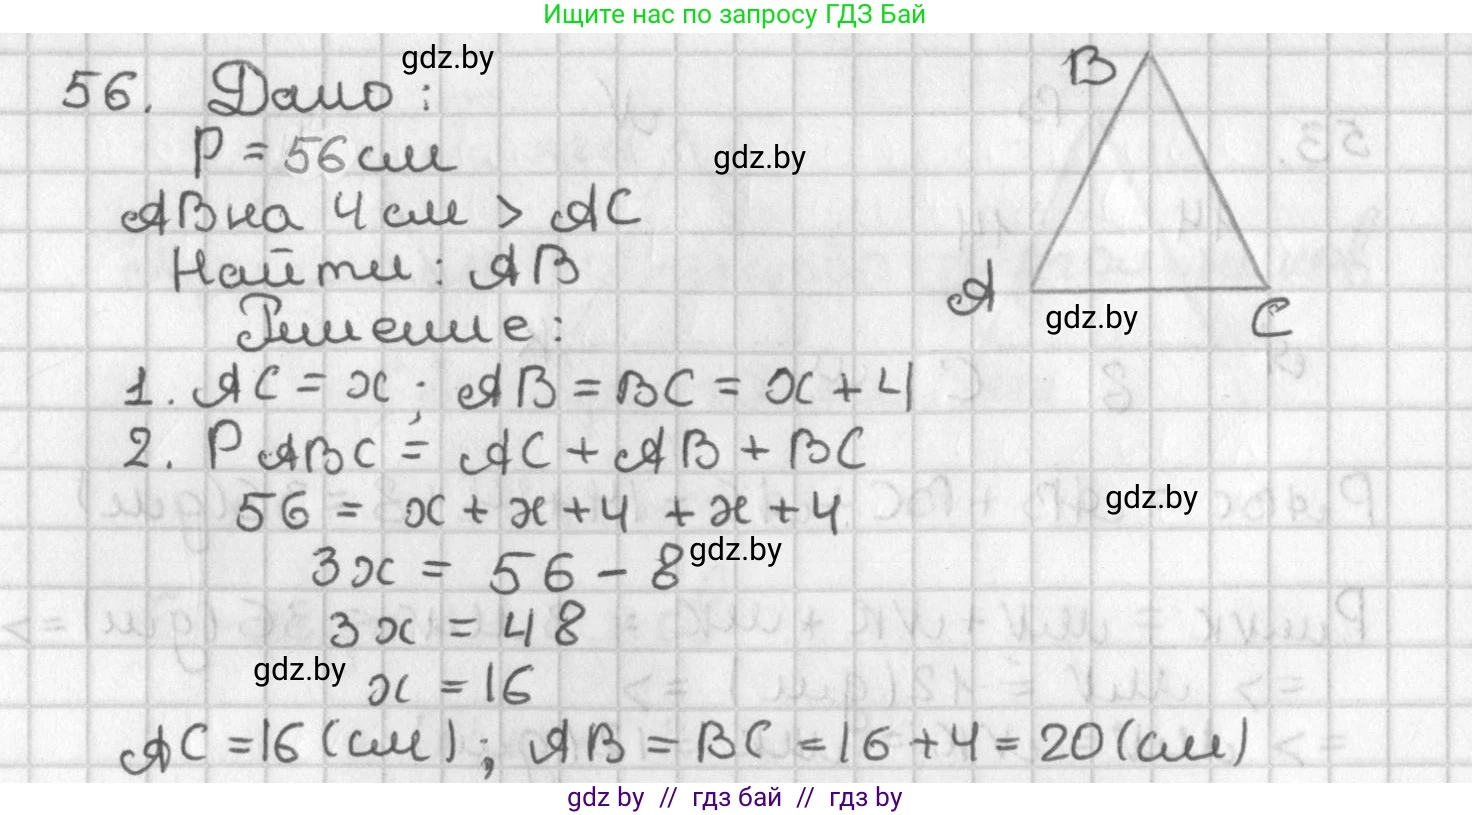 Ищите нас по запросу ГДЗ Бай
gdz.by
56. Дано:
P = 56 см
gdz.by
AB на 4 см > AC
Найти: AB
Решение:
B
A
C
gdz.by
1. AC = x; AB = BC = x + 4
2. P ABC = AC + AB + BC
56 = x + x + 4 + x + 4
gdz.by
3x = 56 - 8
gdz.by
3x = 48
gdz.by
x = 16
AC = 16 (см); AB = BC = 16 + 4 = 20 (см)
gdz by // гдз бай // гдз by